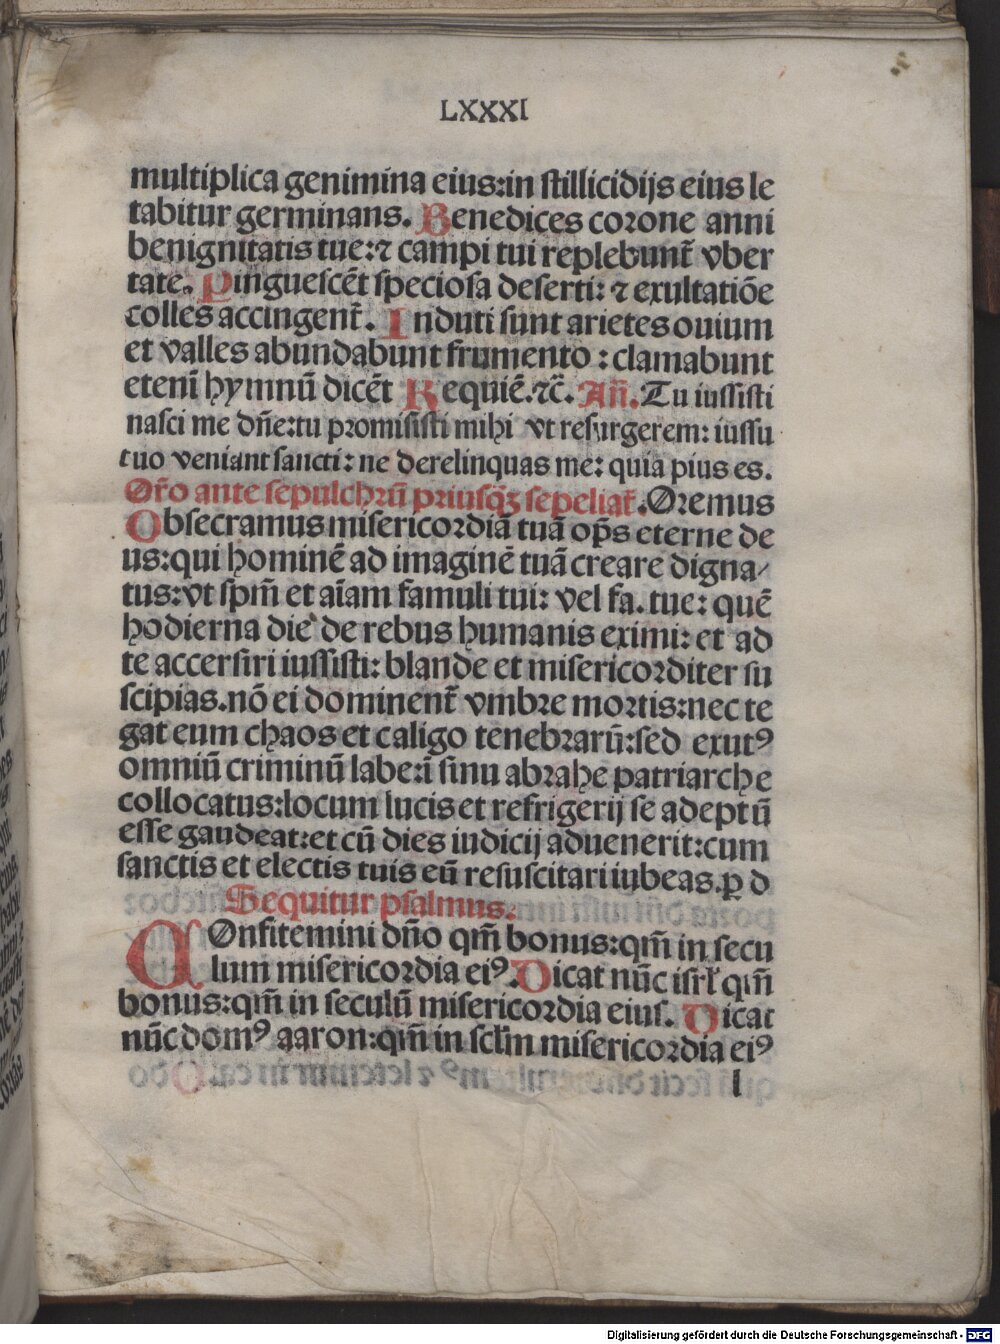 LXXXI
multiplica genimina eius:in stillicidijs eius le
tabitur germinans. Benedices corone anni
benignitatis tue:⁊ campi tui replebunt̄ vber
tate. Pinguescēt speciosa deserti: ⁊ exultatiōe
colles accingent̄. Induti sunt arietes ouium
et valles abundabunt frumento : clamabunt
etenī hymnū dicēt Requiē.⁊c̄. Añ. Tu iussisti
nasci me dñe:tu promisisti mihi vt resurgerem: iussu
tuo veniant sancti: ne derelinquas me: quia pius es.
Or̄o ante sepulchrū priusq̄ꝫ sepeliat̄. Oremus
Obsecramus misericordiā tuā op̄s eterne de
us:qui hominē ad imaginē tuā creare digna⸗
tus:vt sp̄m et aīam famuli tui: vel fa. tue: quē
hodierna die de rebus humanis eximi: et ad
te accersiri iussisti: blande et misericorditer su
scipias.nō ei dominent̄ vmbre mortis:nec te
gat eum chaos et caligo tenebrarū:sed exutꝰ
omniū criminū labe:ī sinu abrahe patriarche
collocatus:locum lucis et refrigerij se adeptū
esse gaudeat:et cū dies iudicij aduenerit:cum
sanctis et electis tuis eū resuscitari iubeas.ꝑ d
Sequitur psalmus.
COnfitemini dño qm̄ bonus:qm̄ in secu
lum misericordia eiꝰ. Dicat nūc isrl̄ qm̄
bonus:qm̄ in seculū misericordia eius. Dicat
nūc domꝰ aaron:qm̄ in scl̄m misericordia eiꝰ
l
Digitalisierung gefördert durch die Deutsche Forschungsgemeinschaft - DFG